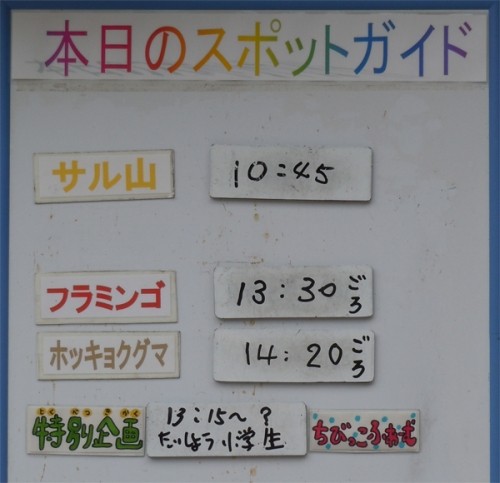 本日のスポットガイド
サル山 10:45
フラミンゴ 13:30ごろ
ホッキョクグマ 14:20ごろ
とくべつきかく
特別企画 13:15〜?
小学生
ちびっころおむ